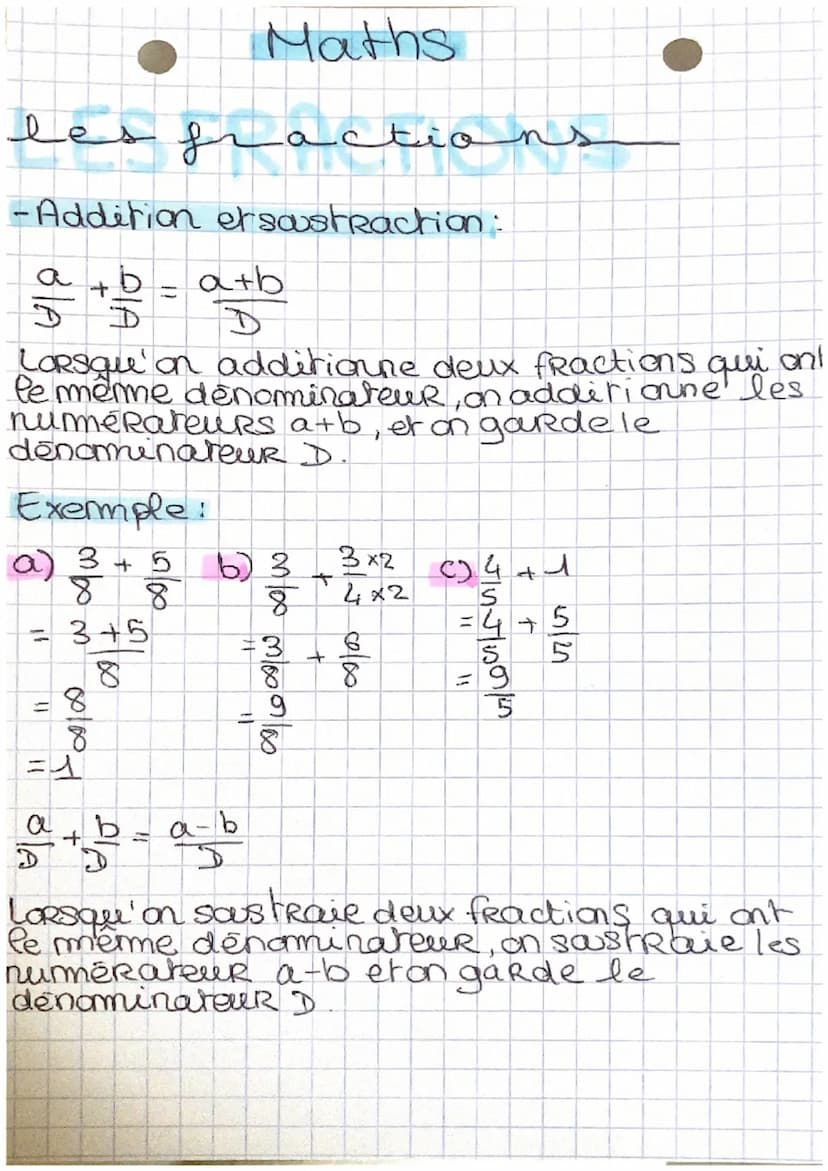 Maths
LES FRACTIONS
les fractions
- Addition et soustraction :
a/D + b/D = a+b/D
Lorsqu'on additionne deux fractions qui ont
le même dénominateur, on additionne les
numérateurs a+b, et on garde le
dénominateur D.
Exemple :
a) 3/8 + 5/8
= 3+5/8
= 8/8
= 1
b) 3/8 + 3×2/4×2
= 3/8 + 6/8
= 9/8
c) 4/5 + 1
= 4/5 + 5/5
= 9/5
a/D + b/D = a-b/D
Lorsqu'on soustraie deux fractions qui ont
le même dénominateur, on soustraie les
numérateur a-b et on garde le
dénominateur D